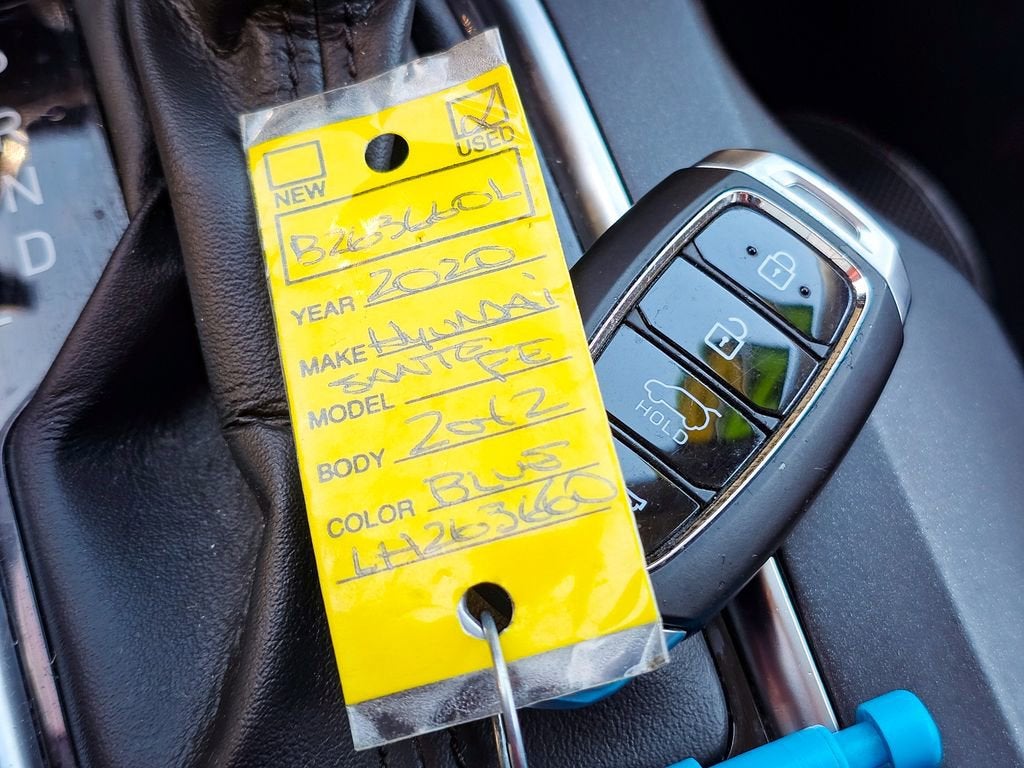 NEW
USED
B263660L
YEAR 2020
MAKE HYUNDAI
SANTE
MODEL FE
BODY
COLOR BLUS
LH263660
HOLD
R
N
D